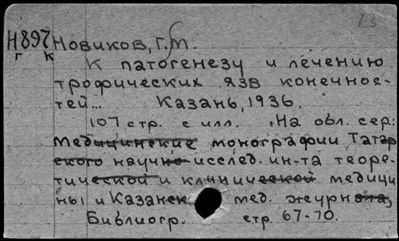 Н897 Новиков, Г.М.
г к
К патогенезу и лечению
трофических язв конечнос-
тей... Казань, 1936.
107 стр. с илл. На обл. сер:
Медицинские монографии Татар
ского научно исслед. ин-та теоре
тической и клинической медици
ны и Казанск мед. журнала,
Библиогр. стр. 67-70.